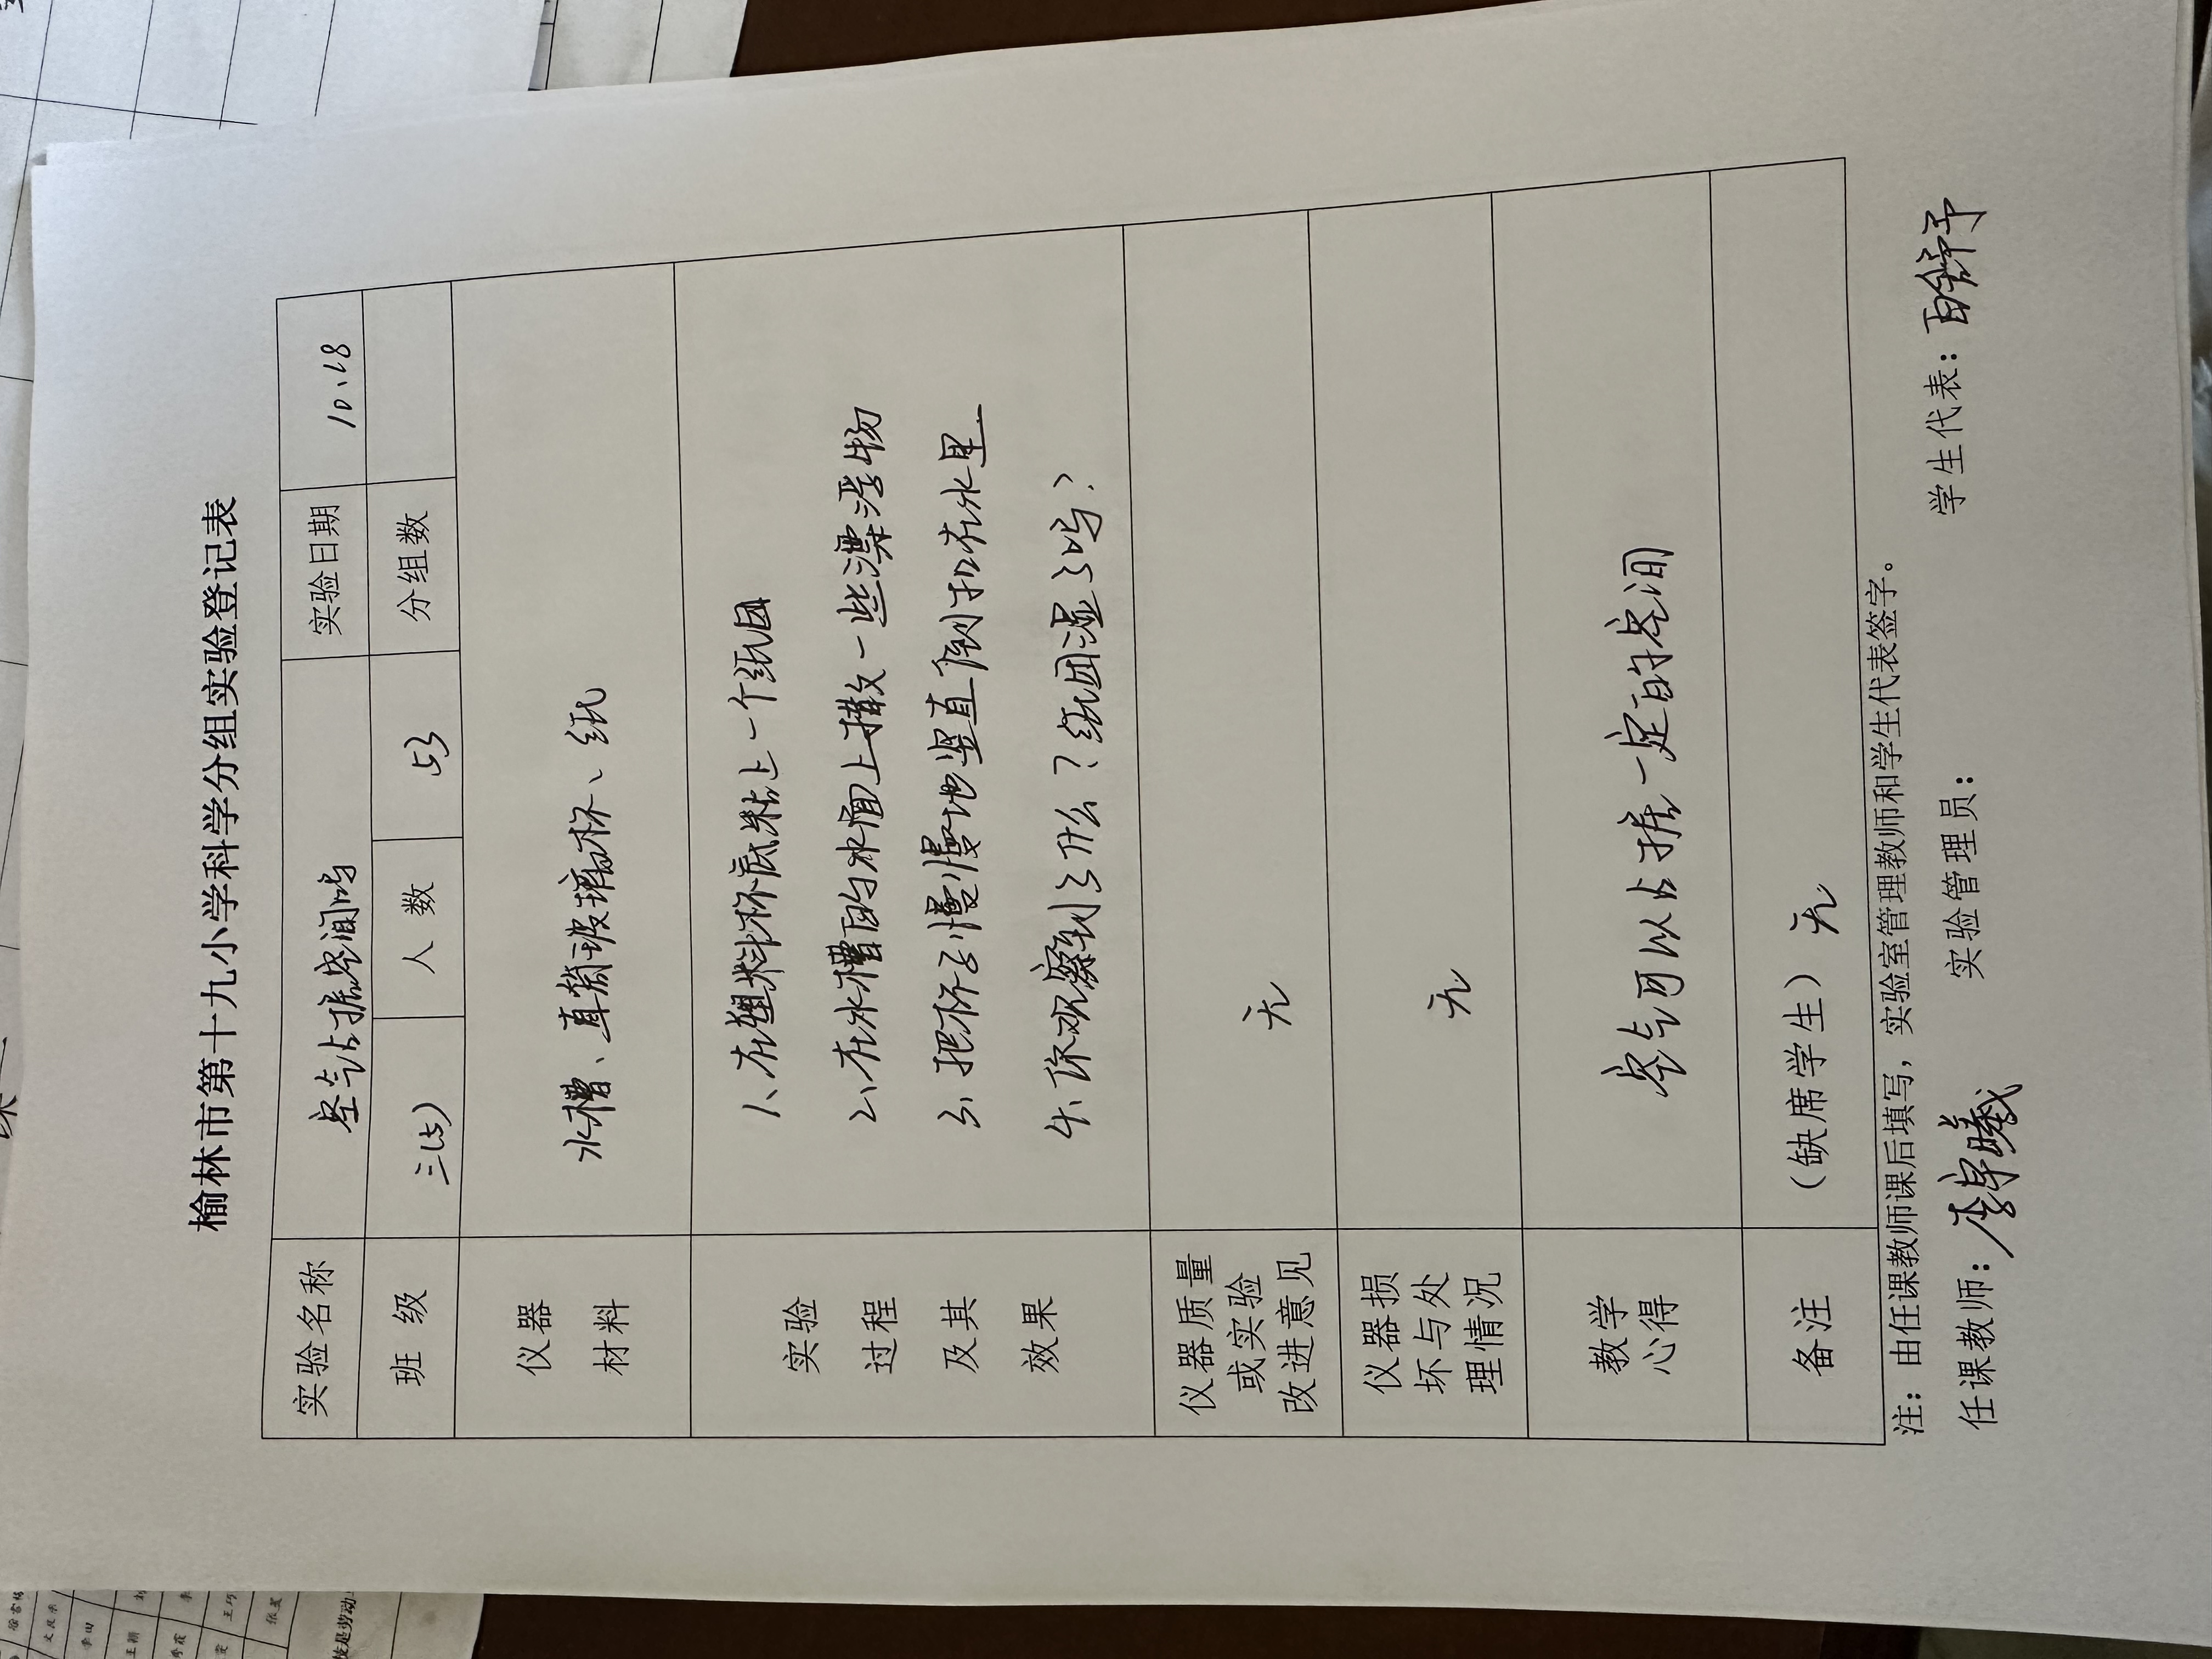 榆林市第十九小学科学分组实验登记表
实验名称 空气占据空间吗 实验日期 10、28
班 级 三(5) 人 数 53 分组数
仪器
材料
水槽、直筒玻璃杯、纸
实验
过程
及其
效果
1、在塑料杯底粘上一个纸团
2、在水槽的水面上撒一些漂浮物
3、把杯子慢慢地竖直倒扣在水里
4、你观察到了什么?纸团湿了吗?
仪器质量
或实验
改进意见
无
仪器损
坏与处
理情况
无
教学
心得
空气可以占据一定的空间
备注 (缺席学生) 无
注:由任课教师课后填写,实验室管理教师和学生代表签字。
任课教师:李宇曦 实验管理员: 学生代表: